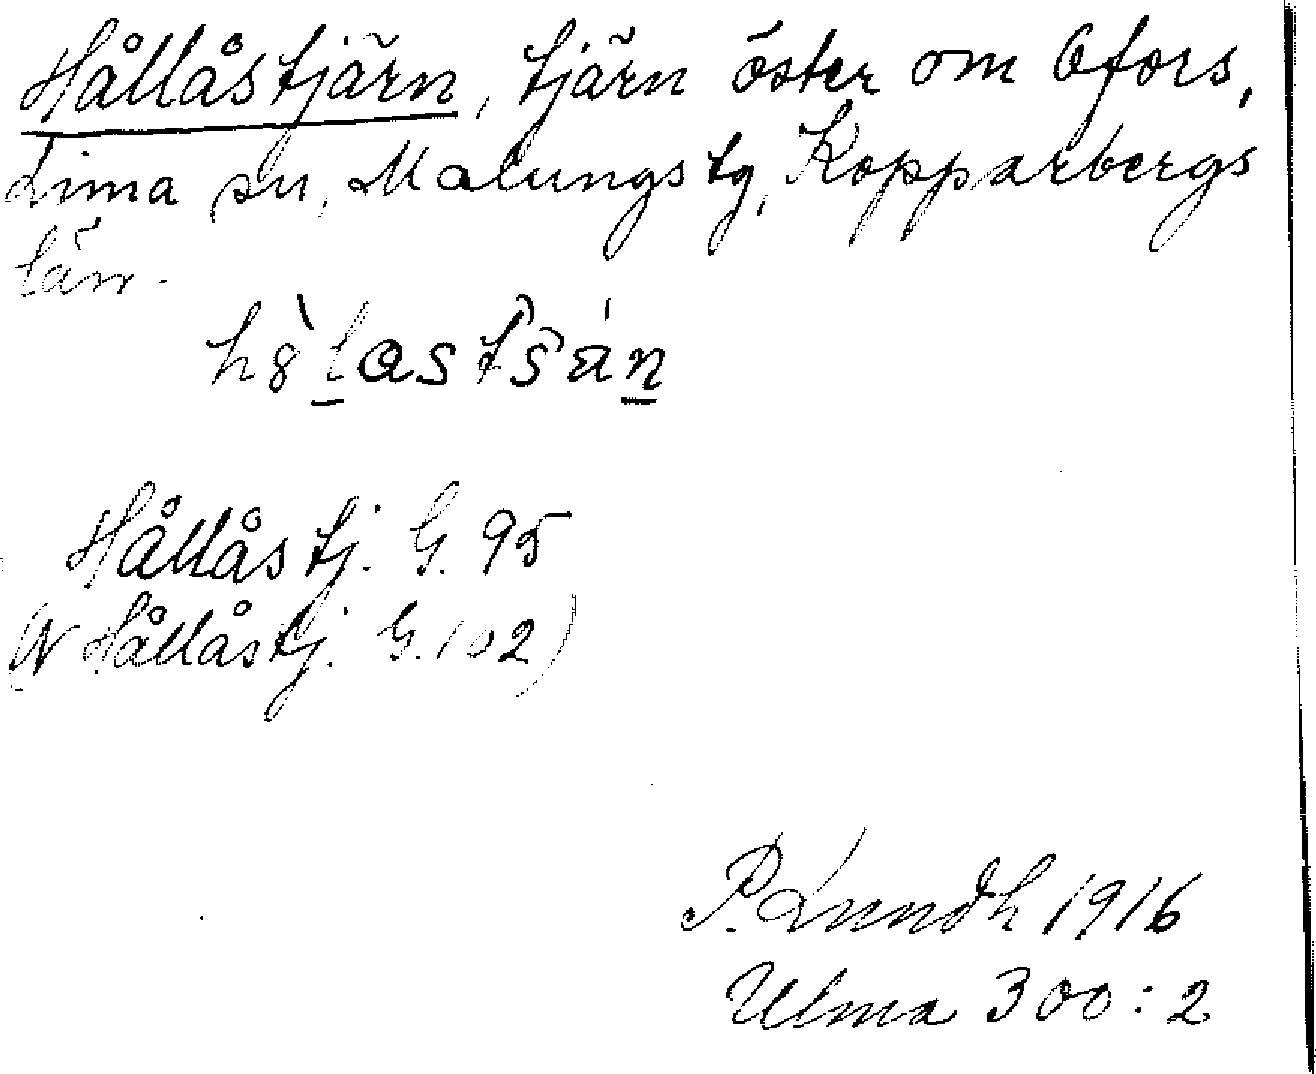 Hållåstjärn, tjärn öster om Ofors,
Lima sn, Malungs tg, Kopparbergs
län.
Hållåstj. G. 95
(N Hållåstj. G. 102)
P. Lundh 1916
Ulma 300:2